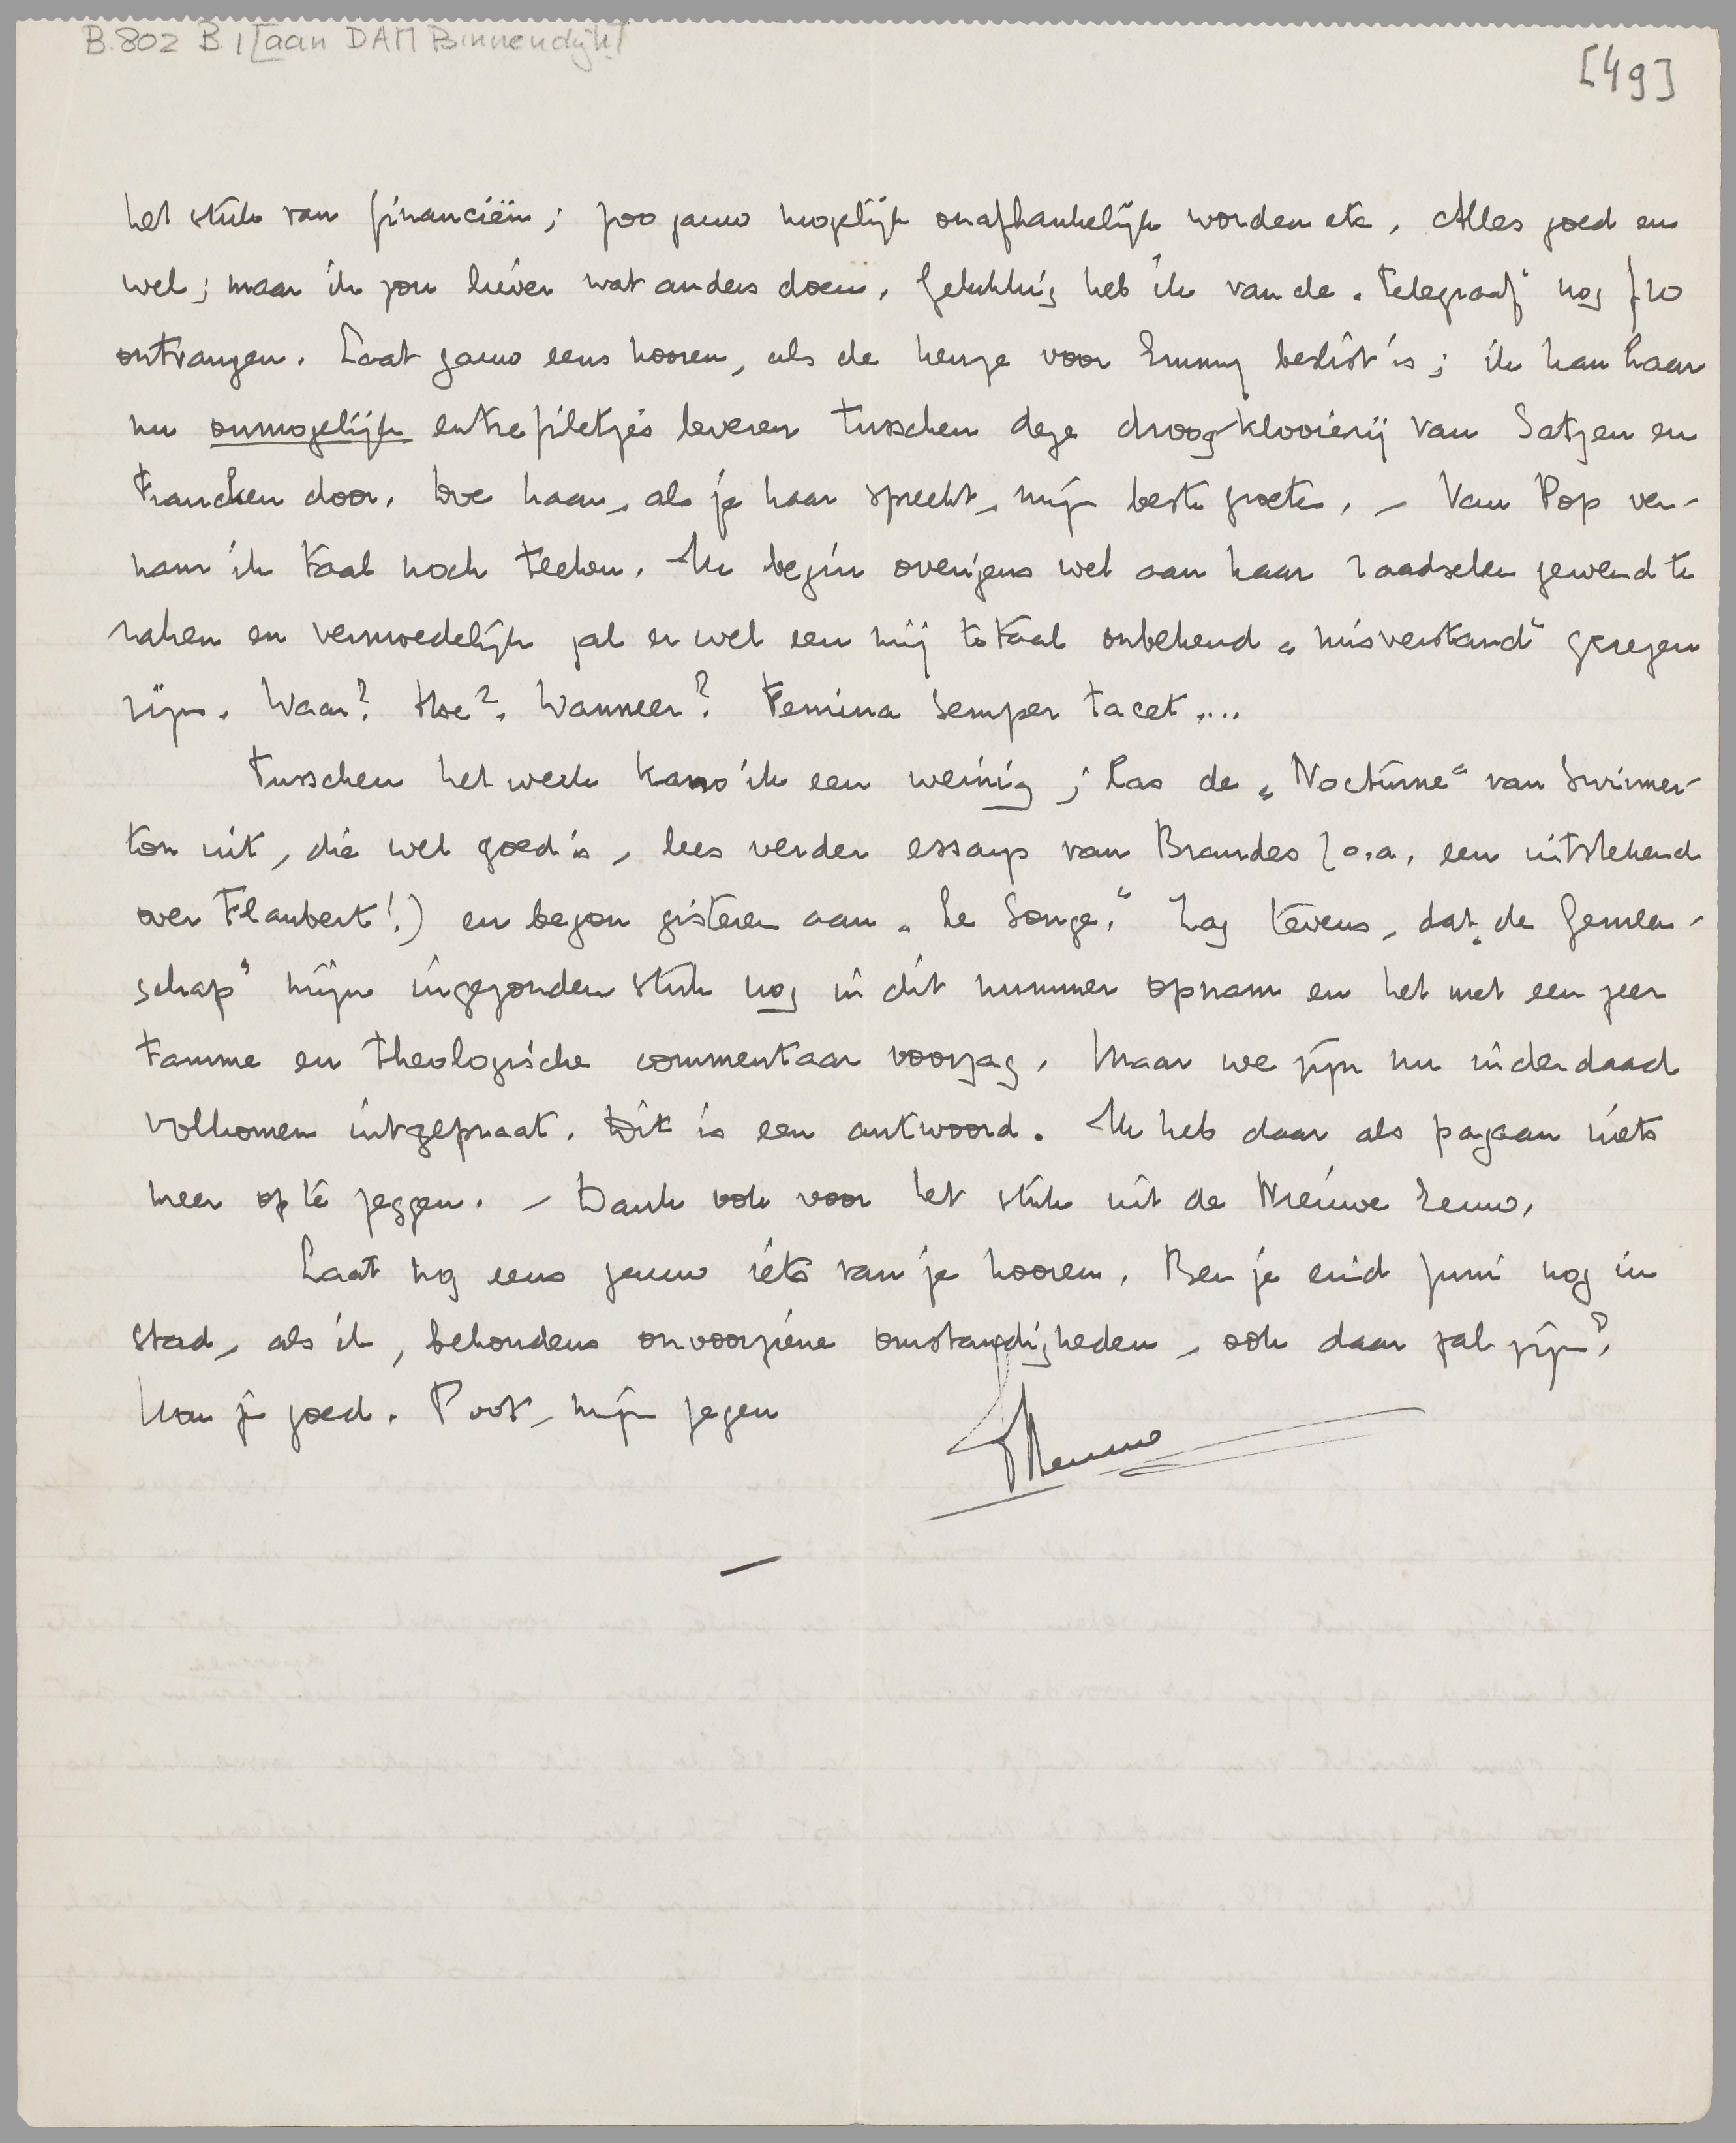 B.802 B.1 [aan DAM Binnendijk]
[49]
het stuk van financiën; zoo gauw mogelijk onafhankelijk worden etc. Alles goed en
wel; maar ik zou liever wat anders doen. Gelukkig heb ik van de „Telegraaf” nog f 20
ontvangen. Laat gauw eens hooren, als de keuze voor Emmy beslist is; ik kan haar
nu onmogelijk entrefiletjes leveren tusschen deze droogklooierij van Satzen en
Francken door. Geef haar, als je haar spreekt, mijn beste groeten. – Van Pop ver-
nam ik taal noch teeken. Ik begin overigens wel aan haar raadselen gewend te
raken en vermoedelijk zal er wel een mij totaal onbekend „misverstand” gerezen
zijn. Waar? Hoe? Wanneer? Femina semper tacet....
Tusschen het werk kano ik een weinig; las de „Nocturne” van Swinner-
ton uit, die wel goed is, lees verder essays van Brandes (o.a. een uitstekend
over Flaubert!) en begon gisteren aan „Le Songe.” Zag tevens, dat „de Gemeen-
schap” mijn ingezonden stuk nog in dit nummer opnam en het met een zeer
tamme en theologische commentaar voorzag. Maar we zijn nu inderdaad
volkomen uitgepraat. Dit is een antwoord. Ik heb daar als pagaan niets
meer op te zeggen. – Dank ook voor het stuk uit de Nieuwe Eeuw.
Laat nog eens gauw iets van je hooren. Ben je eind Juni nog in
stad, als ik, behoudens onvoorziene omstandigheden, ook daar zal zijn?
Hou je goed. Poot, mijn zegen
Menno